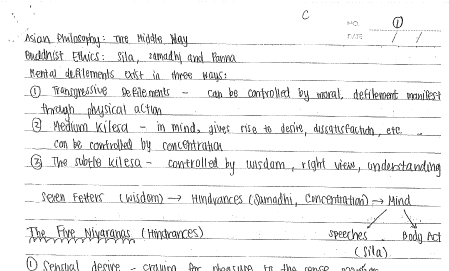 C
NO. ①
DATE / /
Asian Philosophy: The Middle Way
Buddhist Ethics: Sila, Samadhi and Panna
Mental defilements exist in three ways:
① Transgressive Defilements - can be controlled by moral, defilement manifest
through physical action
② Medium Kilesa - in mind, gives rise to desire, dissatisfaction, etc.
can be controlled by concentration
③ The subtle kilesa - controlled by wisdom, right view, understanding
Seven Fetters (wisdom) → Hindrances (Samadhi, Concentration) → Mind
The Five Nivaranas (Hindrances) speeches Body Act
(Sila)
① Sensual desire - craving for pleasure to the sense